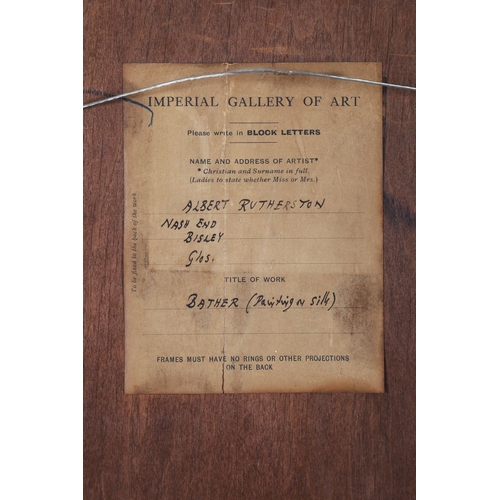 IMPERIAL GALLERY OF ART
Please write in BLOCK LETTERS
NAME AND ADDRESS OF ARTIST*
* Christian and Surname in full.
(Ladies to state whether Miss or Mrs.)
ALBERT RUTHERSTON
NASH END
BISLEY
Glos.
TITLE OF WORK
BATHER (Painting on Silk)
FRAMES MUST HAVE NO RINGS OR OTHER PROJECTIONS
ON THE BACK
To be fixed to the back of the work